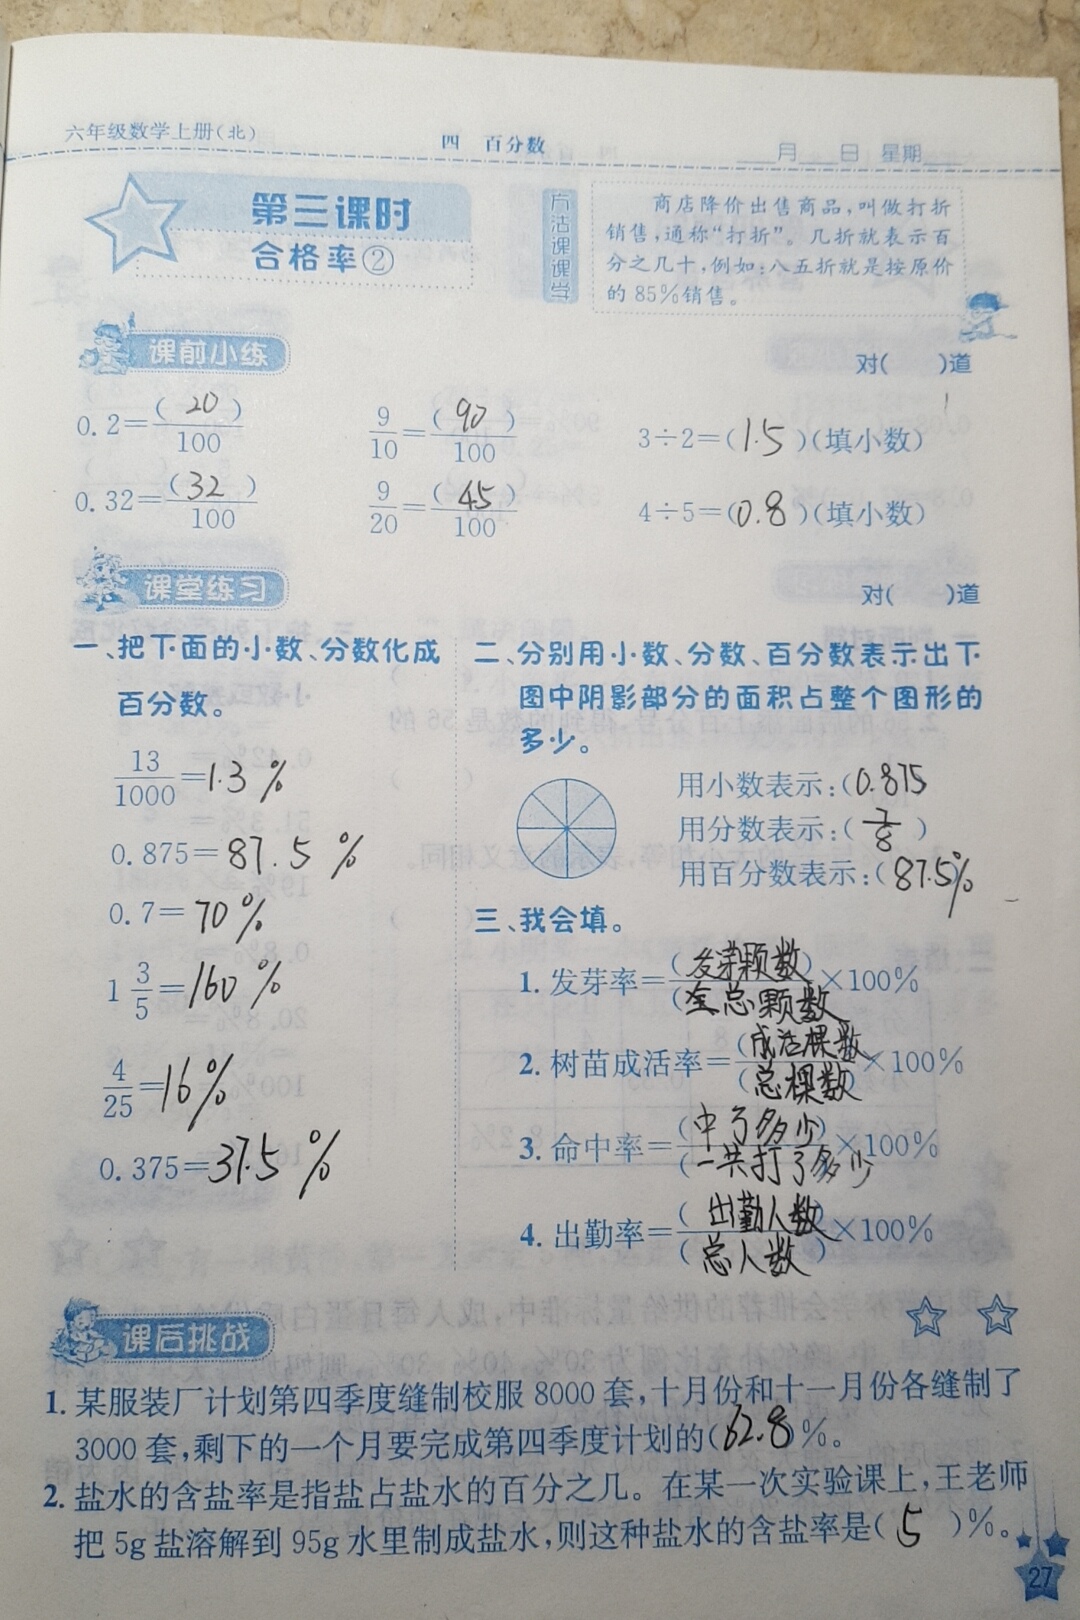 六年级数学上册(北)
四 百分数
月 日 星期
第三课时
合格率②
方法课课学
商店降价出售商品,叫做打折
销售,通称“打折”。几折就表示百
分之几十,例如:八五折就是按原价
的85%销售。
课前小练
对( )道
0.2=(20)/100 9/10=(90)/100 3÷2=(1.5)(填小数)
0.32=(32)/100 9/20=(45)/100 4÷5=(0.8)(填小数)
课堂练习
对( )道
一、把下面的小数、分数化成
百分数。
13/1000=1.3%
0.875=87.5%
0.7=70%
1 3/5=160%
4/25=16%
0.375=37.5%
二、分别用小数、分数、百分数表示出下
图中阴影部分的面积占整个图形的
多少。
用小数表示:(0.875
用分数表示:(7/8)
用百分数表示:(87.5%
三、我会填。
1. 发芽率=(发芽颗数)/(全总颗数)×100%
2. 树苗成活率=(成活棵数)/(总棵数)×100%
3. 命中率=(中了多少)/(一共打了多少)×100%
4. 出勤率=(出勤人数)/(总人数)×100%
课后挑战
1. 某服装厂计划第四季度缝制校服8000套,十月份和十一月份各缝制了
3000套,剩下的一个月要完成第四季度计划的(62.8)%。
2. 盐水的含盐率是指盐占盐水的百分之几。在某一次实验课上,王老师
把5g盐溶解到95g水里制成盐水,则这种盐水的含盐率是(5)%。
27